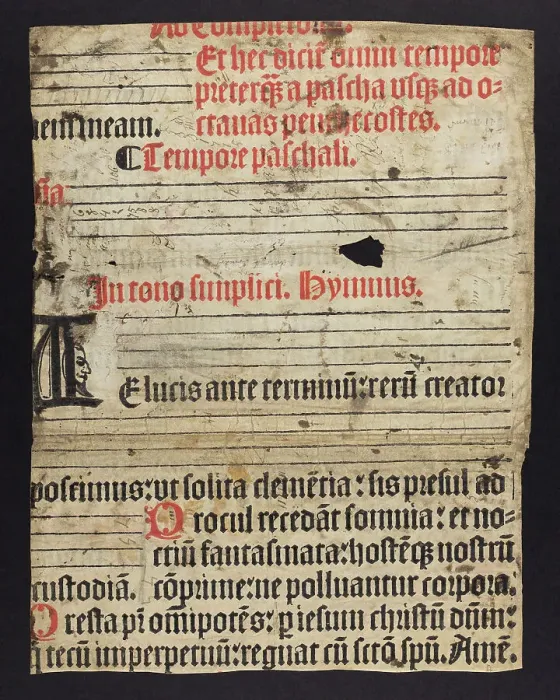 Ad Completoriũ.
Et hec dicit̃ omni tempore
preterq̃ȝ a pascha vsqȝ ad o=
ctauas penthecostes.
meam.
¶Tempore paschali.
In tono simplici. Hymnus.
TE lucis ante terminũ:rerũ creator
poscimus:vt solita clemẽtia: sis presul ad
Procul recedãt somnia: et no=
ctiũ fantasmata:hostẽqȝ nostrũ
custodiã. cõprime:ne polluantur corpora.
Presta pr̃ om̃ipotẽs: ꝑ iesum christũ dñm:
q̃ tecũ imperpetuũ:regnat cũ sctõ spũ. Amẽ.